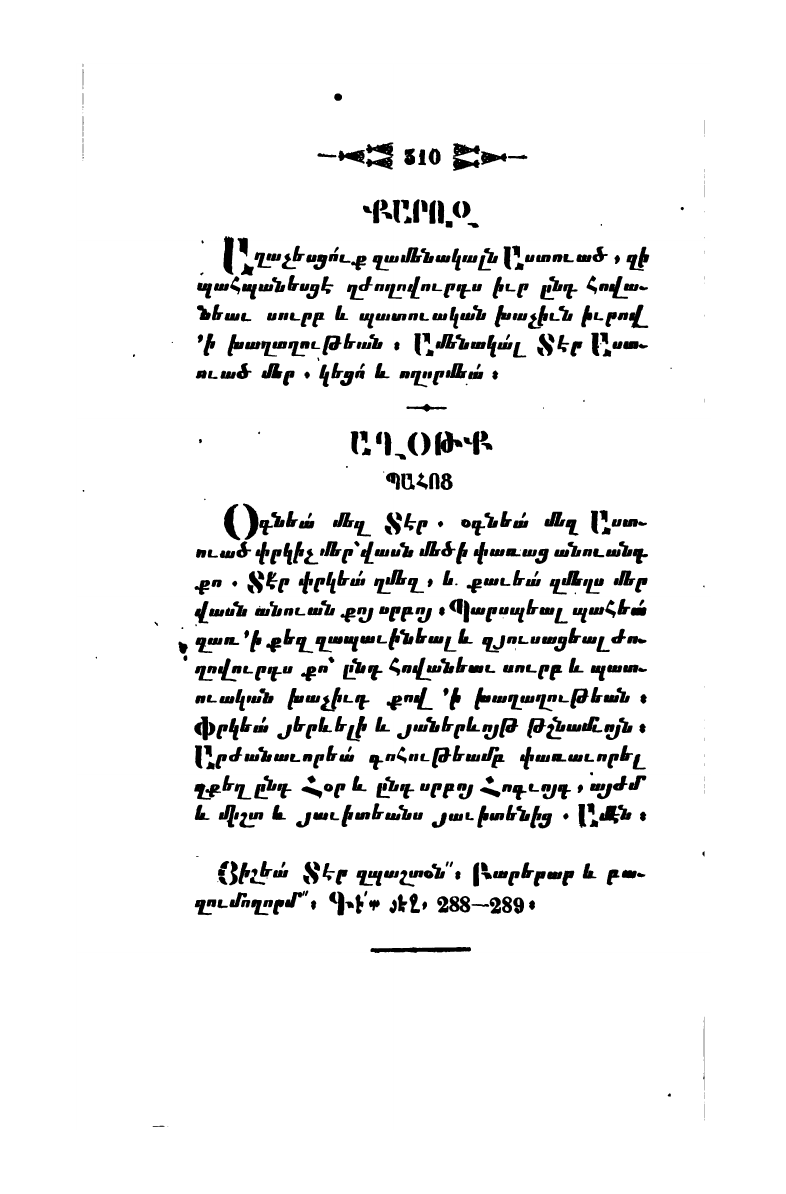 310
ՔԱՐՈԶ
Աղաչեսցո՛ւք զամենակալն Աստուած, զի
պահպանեսցէ զժողովուրդս իւր ընդ հովա-
նեաւ սուրբ և պատուական խաչիւն իւրով
՚ի խաղաղութեան։ Ամենակա՛լ Տէր Աստ-
ուած մեր. կեցո՛ և ողորմեա՛։
ԱՂՕԹՔ
ՊԱՀՈՑ
Օգնեա՛ մեզ Տէր. օգնեա՛ մեզ Աստ-
ուած փրկիչ մեր՝ վասն մեծի փառաց անուանդ
քո. Տէ՛ր փրկեա՛ զմեզ, և քաւեա՛ զմեղս մեր
վասն անուան քոյ սրբոյ։ Պարսպեալ պահեա՛
զառ ՚ի քեզ զապաւինեալ և զյուսացեալ ժո-
ղովուրդս քո՝ ընդ հովանեաւ սուրբ և պատ-
ուական խաչիւդ քով ՚ի խաղաղութեան։
Փրկեա՛ յերևելի և յաներևոյթ թշնամւոյն։
Արժանաւորեա՛ գոհութեամբ փառաւորել
զքեզ ընդ Հօր և ընդ սրբոյ Հոգւոյդ, այժմ
և միշտ և յաւիտեանս յաւիտենից. Ամէն։
Յիշեա՛ Տէր զպաշտօն՟։ Բարերար և բա-
զումողորմ՟։ Գտէ՛ս յէջ, 288—289։